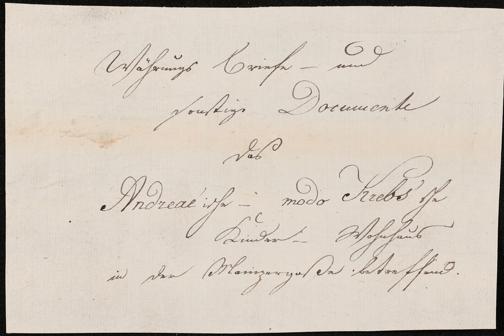 Währungs Briefe – und
sonstige Documente
das
Andreae'ische – modo Krebs'sche
Kinder – Wohnhaus
in der Mainzergaße betreffend.